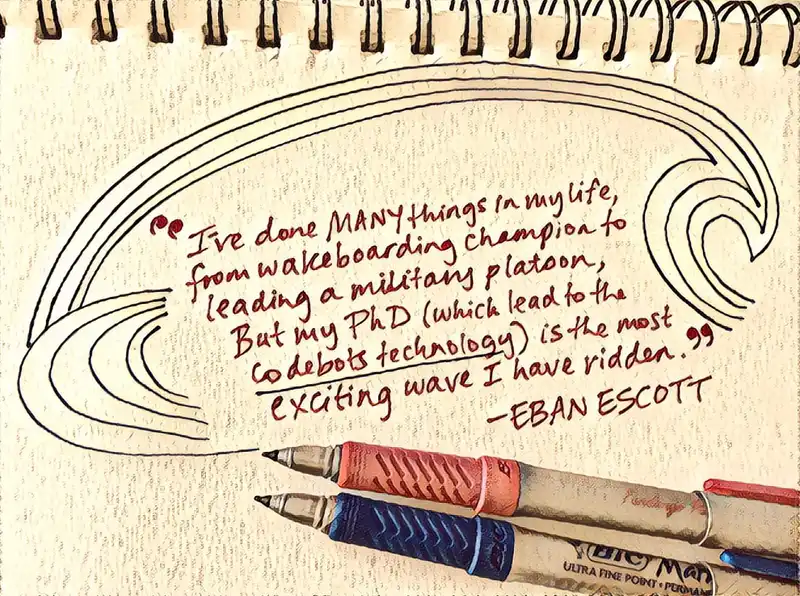 “I've done MANY things in my life,
from wakeboarding champion to
leading a military platoon,
But my PhD (which lead to the
codebots technology) is the most
exciting wave I have ridden.”
-EBAN ESCOTT
BIC Mar
ULTRA FINE POINT • PERMAN